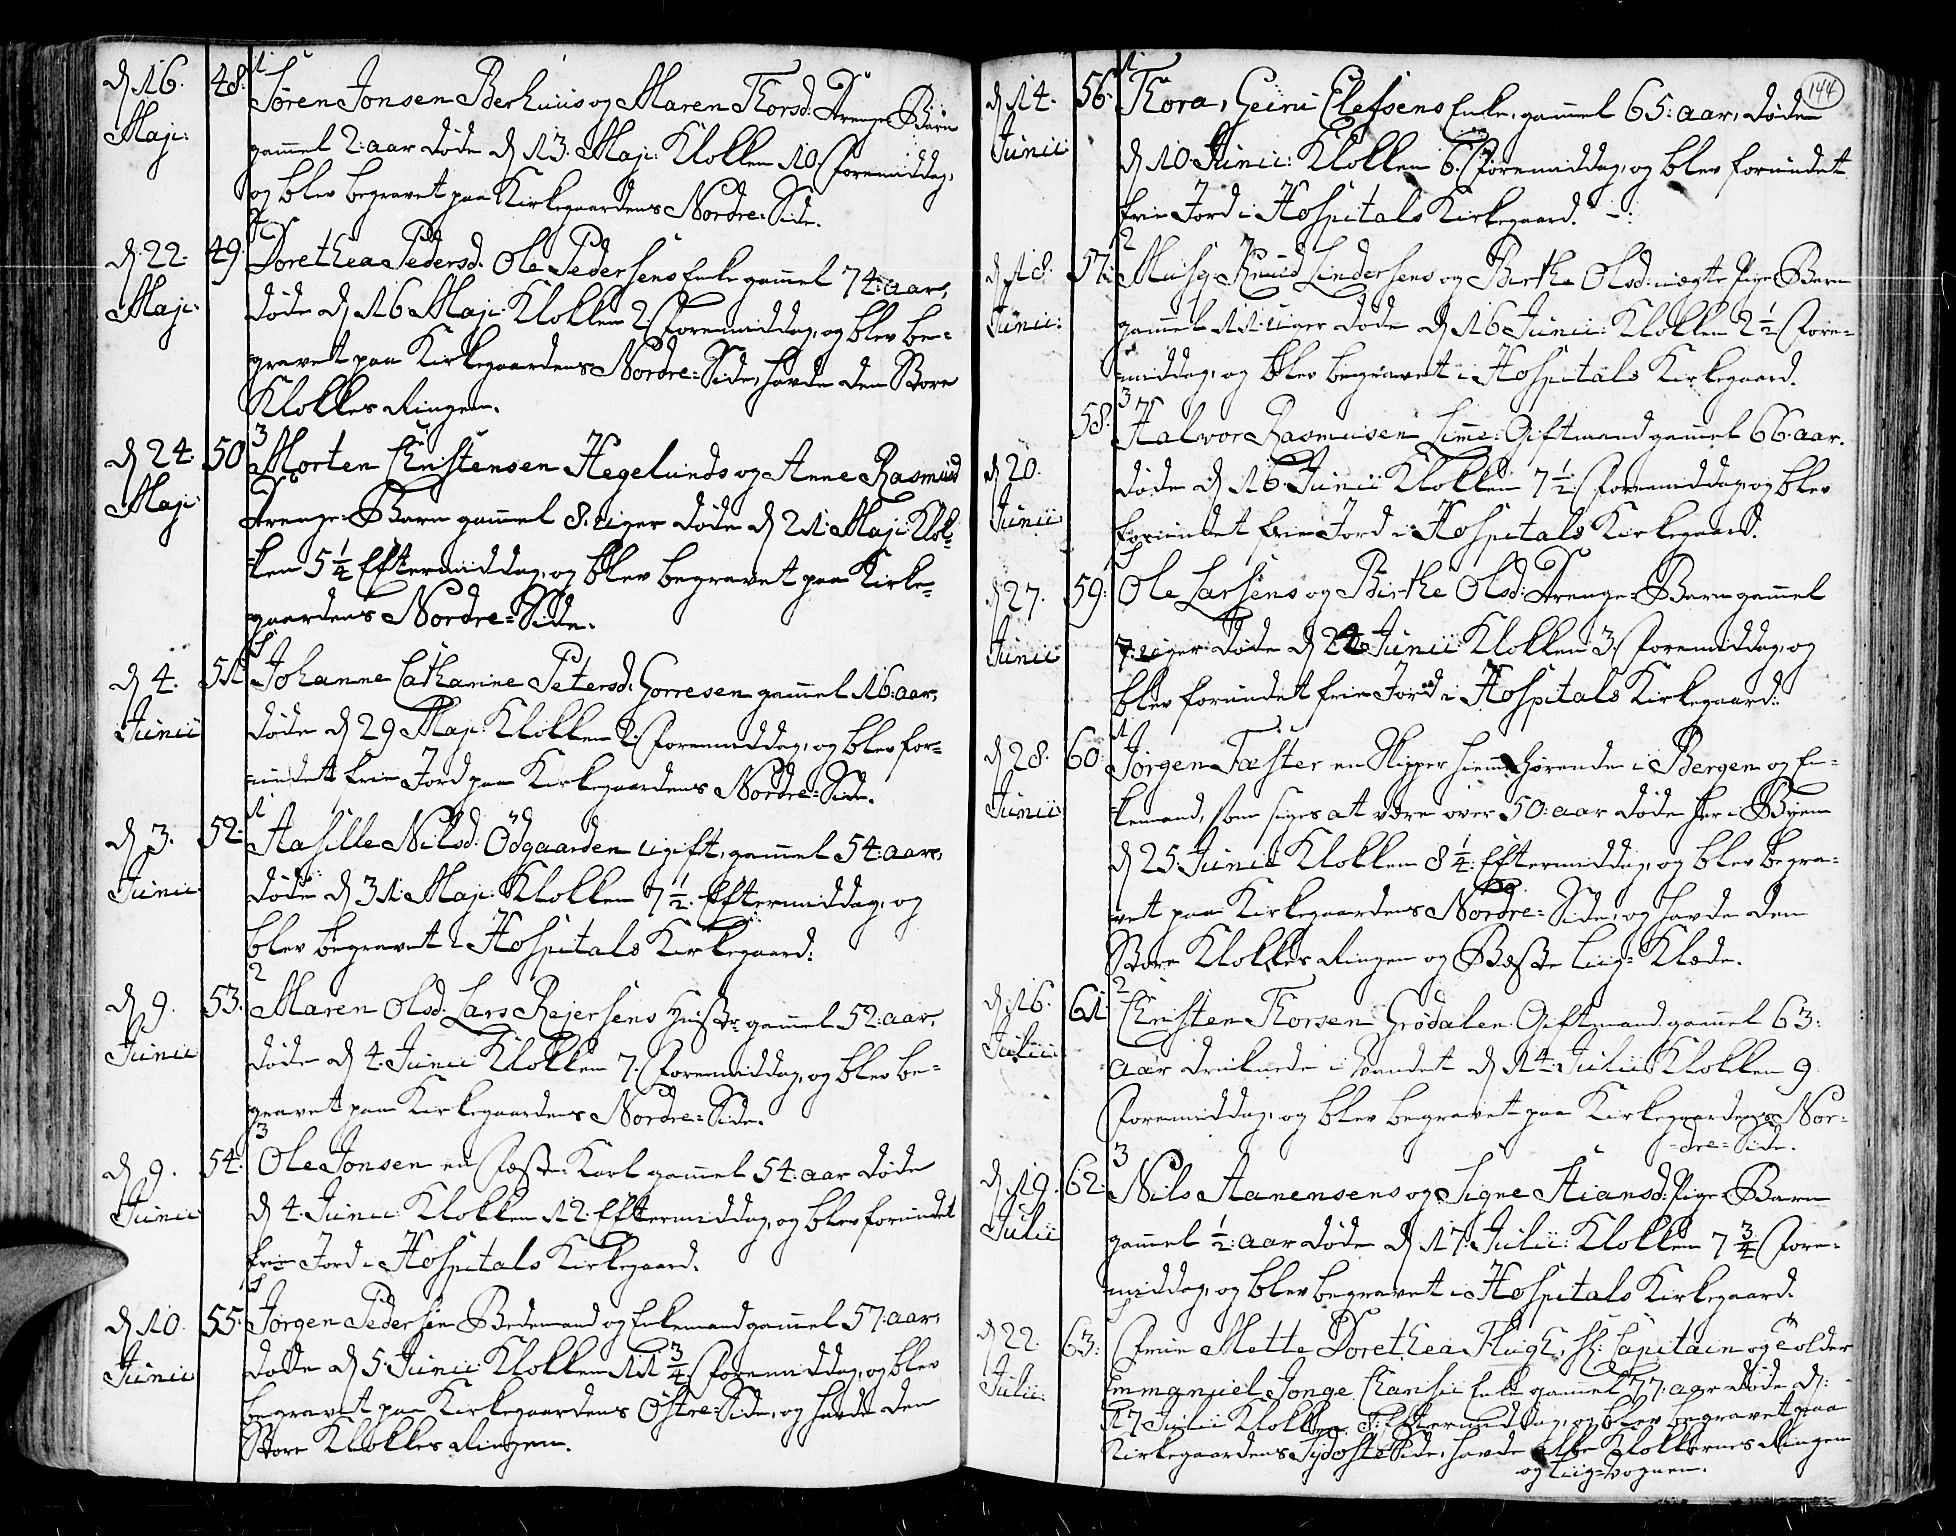 d. 16. Maji: 48. 1
Søren Jonsen Berhuus og Maren Thorsd: Drenge-Barn
gammel 2: aar døde d. 13. Maji: Klokken 10. Formiddag,
og blev begravet paa Kirkegaardens Nordre-Side.
d. 22. Maji: 49. 2
Dorethea Pedersd: Ole Pedersens Enke gammel 74: aar,
døde d. 16 Maji: Klokken 2. Foremiddag, og blev be-
gravet paa Kirkegaardens Nordre-Side, havde den Store
Klokkes Ringen.
d. 24. Maji: 50 3
Morten Christensen Hegelunds og Anne Rasmusd
Drenge-Barn gammel 8. uger døde d. 21 Maji Klok-
ken 5 1/4 Eftermiddag, og blev begravet paa Kirke-
gaardens Nordre-Side.
d. 4. Junii 51
Johanne Catharine Petersd: Gorresen gammel 16: aar,
døde d. 29 Maji: Klokken 2. Foremiddag, og blev for-
undet frie Jord paa Kirkegaardens Nordre-Side.
d. 3. Junii 52. 1
Aasille Nilsd: Ödgaarden ugift, gammel 54: aar,
døde d. 31. Maji: Klokken 7 1/2. Eftermiddag, og
blev begravet i Hospitals Kirkegaard:
d. 9. Junii 53. 2
Maren Olsd. Lars Rejersens Hustr: gammel 52: aar,
døde d. 4. Junii Klokken 7. Foremiddag, og blev be-
gravet paa Kirkegaardens Nordre-Side.
d. 9. Junii 54. 3
Ole Jonsen en Karl gammel 54: aar døde
d. 4. Junii: Klokken 12. Eftermiddag, og blev forundet
frie Jord i Hospitals Kirkegaard.
d. 10. Junii 55.
Jørgen Pedersen Bedemand og Enkemand gammel 57: aar,
døde d. 5. Junii: Klokken 11 3/4 Foremiddag, og blev
begravet paa Kirkegaardens Østre-Side, og havde den
Store Klokkes Ringen.
144
d. 14. Junii 56. 1
Thora, Geiru Elefsens Enke, gammel 65: aar, døde
d. 10 Junii: Klokken 6. Foremiddag, og blev forundet
frie Jord i Hospitals Kirkegaard.
d. 18. Junii: 57. 2
Knud Lindersens og Birthe Olsd: uægte Pige-Barn
gammel 11. uger døde d. 16 Junii: Klokken 2 1/2 Fore-
middag, og blev begravet i Hospitals Kirkegaard.
d. 20. Junii 58. 3
Halvor Rasmusen Lime: Giftmand gammel 66. aar.
døde d. 16. Junii Klokken 7 1/2. Foremiddag, og blev
forundet frie Jord i Hospitals Kirkegaard.
d. 27. Junii 59.
Ole Larsens og Birthe Olsd: Drenge-Barn gammel
7. uger døde d. Junii Klokken 3. Foremiddag, og
blev forundet frie Jord i Hospitals Kirkegaard:
d. 28. Junii 60. 1
Jørgen Tæster en Skipper hiemhørende i Bergen og En-
kemand, som siges at være over 50: aar døde her i Byen
d. 25. Junii Klokken 8 1/4: Eftermiddag, og blev begra-
vet paa Kirkegaardens Nordre-Side, og havde den
Store Klokkes Ringen og Beste Liig-Klæde.
d. 16. Julii: 61 2
Christen Thorsen Grødalen Giftmand gammel 63:
aar druknede i Vandet d. 14. Julii Klokken 9.
Foremiddag, og blev begravet paa Kirkegaardens Nor-
-dre-Side.
d. 19. Julii 62. 3
Nils Aanensens og Signe Aiansd: Pige-Barn
gammel 1/2: aar døde d. 17. Julii: Klokken 7 3/4 Fore-
middag, og blev begravet i Hospitals Kirkegaard.
d. 22. Julii: 63.
Frue Mette Dorethea Flugh, Sl: Capitain og Tolder
Emmanuel Jonge Enke gammel 77. aar døde d:
17 Julii Klokken Eftermiddag, og blev begravet paa
Kirkegaardens Sydøste Side, havde alle Klokkernes Ringen
og Liig-Vognen.